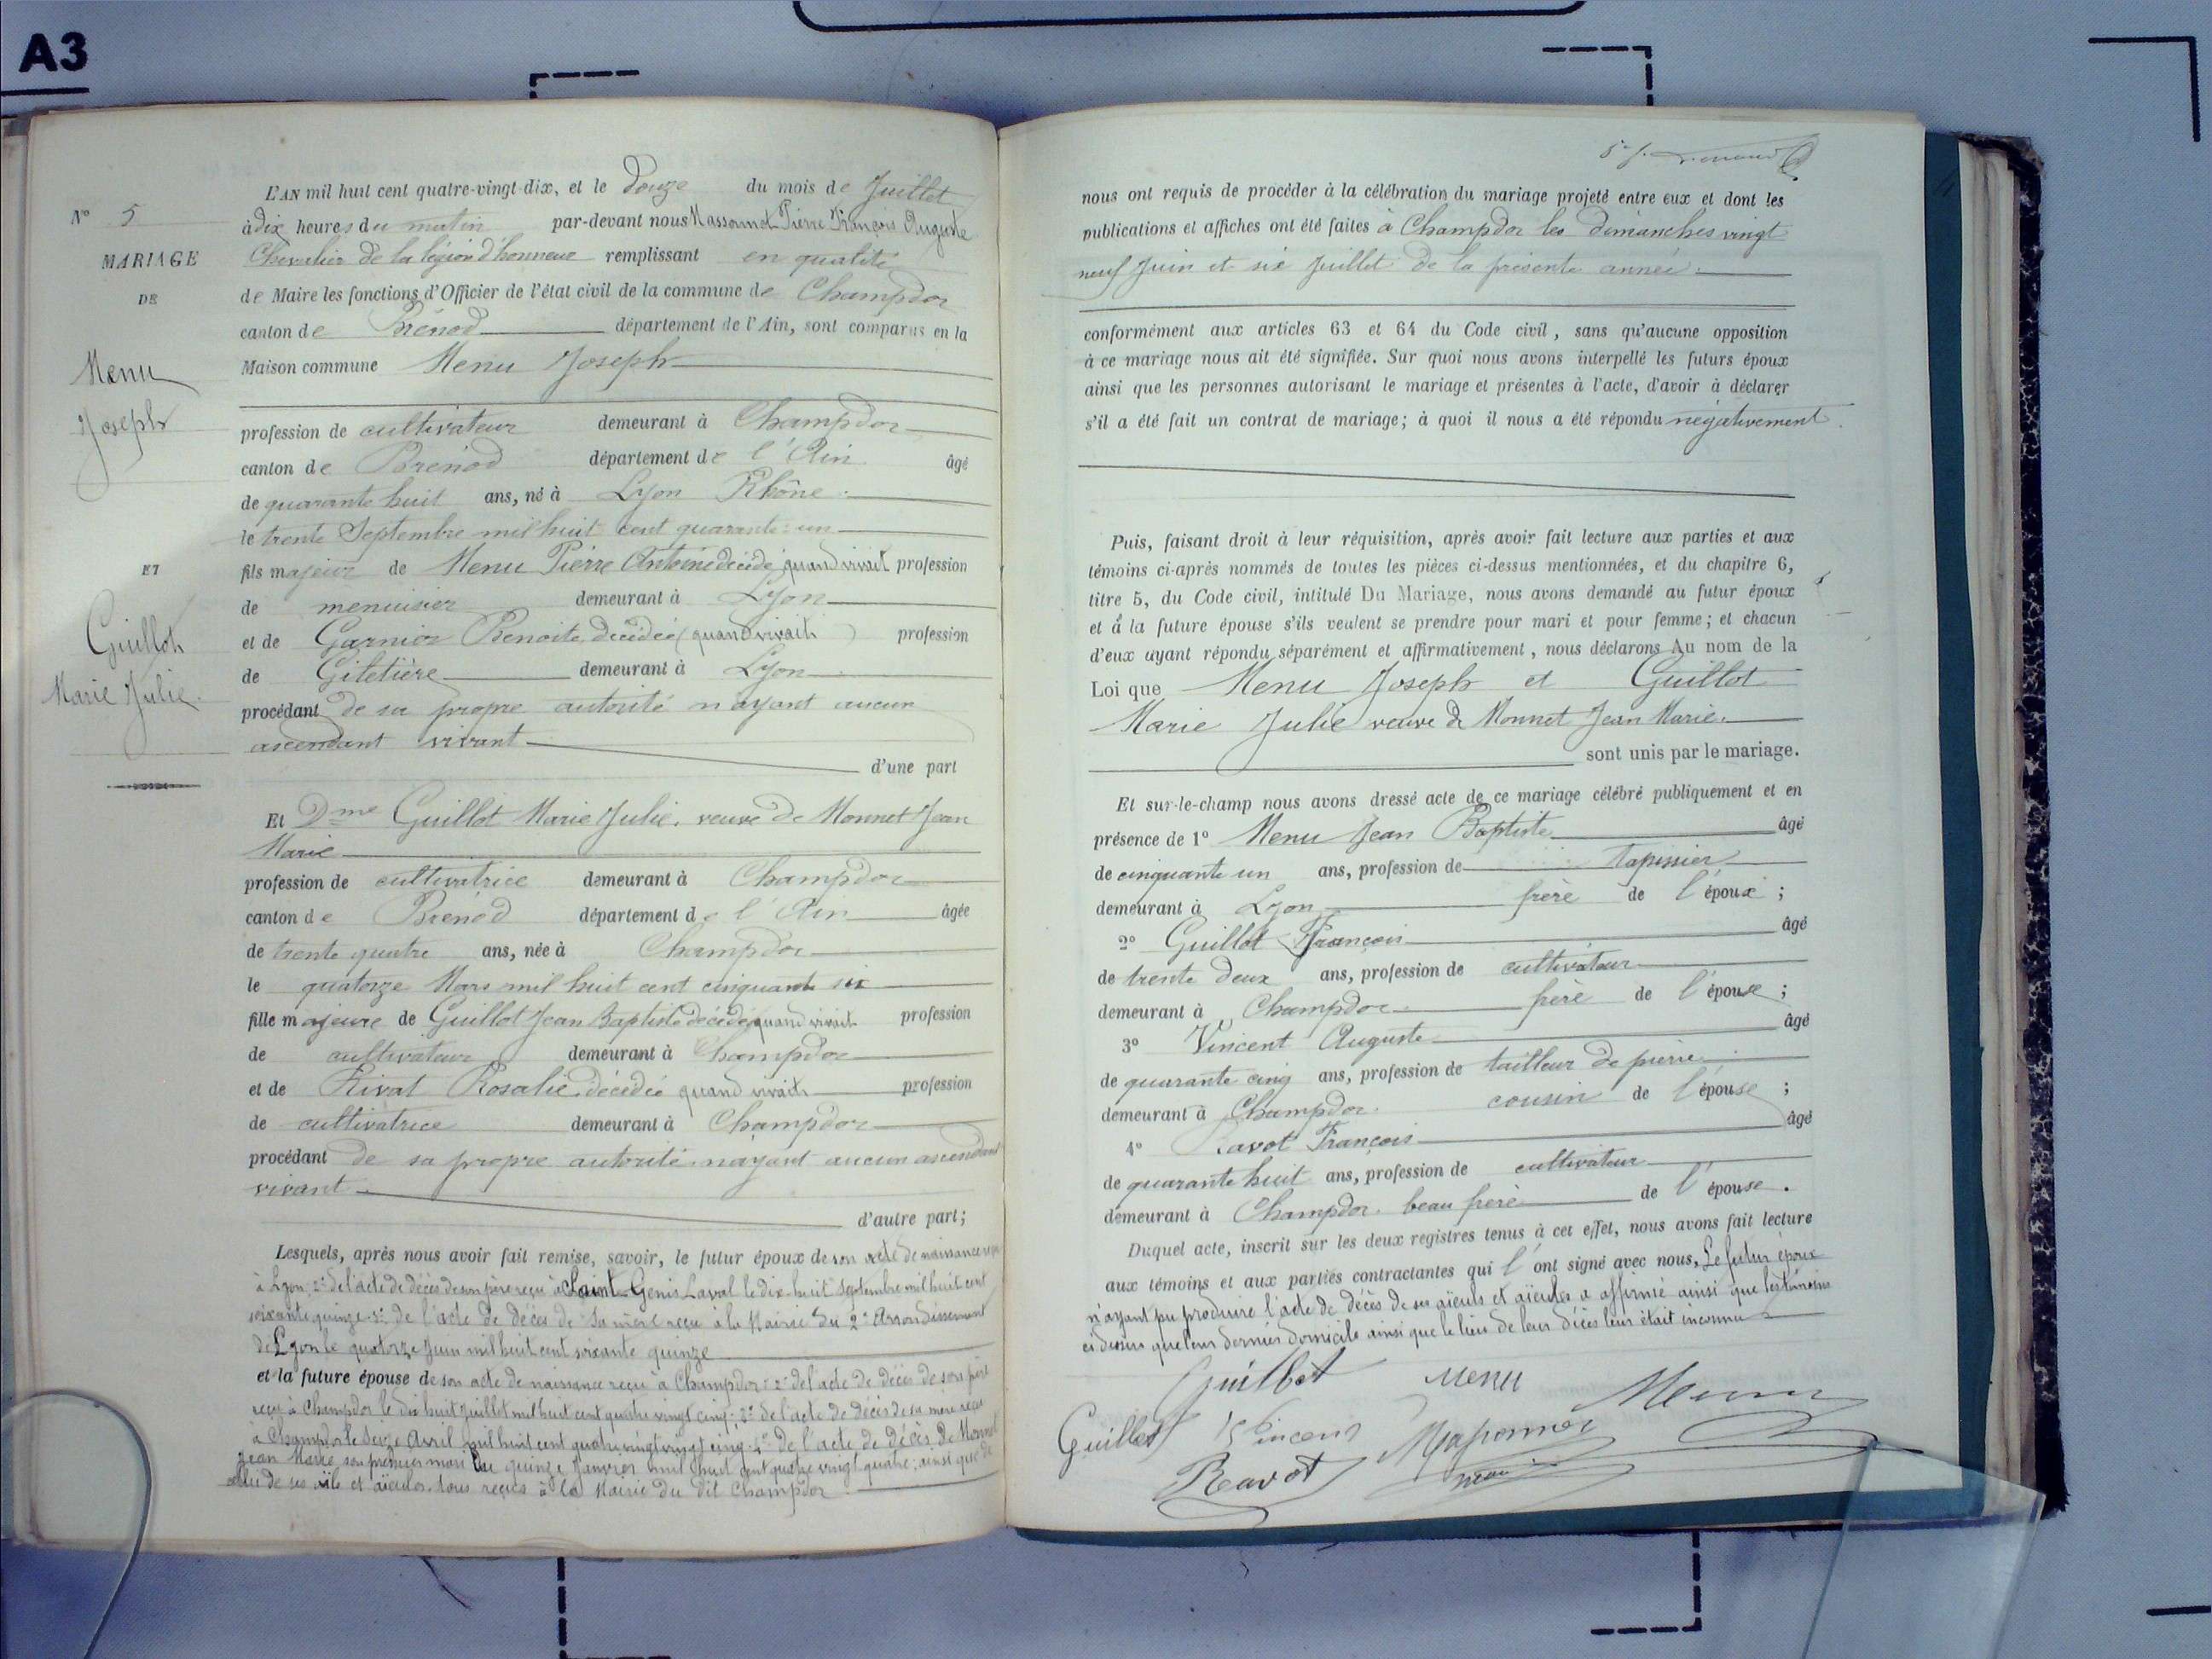 A3
L'AN mil huit cent quatre-vingt-dix, et le douze du mois de Juillet
N° 5
à dix heures du matin par-devant nous Massonnet Pierre François Auguste
MARIAGE
Chevalier de la légion d'honneur remplissant en qualité
DE
de Maire les fonctions d'Officier de l'état civil de la commune de Champdor
canton de Brénod département de l'Ain, sont comparus en la
Maison commune Menu Joseph
Menu
Joseph
profession de cultivateur demeurant à Champdor
canton de Brénod département de l'Ain âgé
de quarante huit ans, né à Lyon Rhône
le trente Septembre mil huit cent quarante-un
ET
fils majeur de Menu Pierre Antoine décédé quand vivait profession
de menuisier demeurant à Lyon
Guillot
et de Garnier Benoite décédée (quand vivait) profession
de Giletière demeurant à Lyon
Marie Julie
procédant de sa propre autorité n'ayant aucun
ascendant vivant
d'une part
Et Dme Guillot Marie Julie, veuve de Monnet Jean
Marie
profession de cultivatrice demeurant à Champdor
canton de Brénod département de l'Ain âgée
de trente quatre ans, née à Champdor
le quatorze Mars mil huit cent cinquante six
fille majeure de Guillot Jean Baptiste décédé quand vivait profession
de cultivateur demeurant à Champdor
et de Rivat Rosalie décédée quand vivait profession
de cultivatrice demeurant à Champdor
procédant de sa propre autorité n'ayant aucun ascendant
vivant
d'autre part;
Lesquels, après nous avoir fait remise, savoir, le futur époux de son acte de naissance reçu
à Lyon 2° de l'acte de décès de son père reçu à Saint-Genis Laval le dix-huit Septembre mil huit cent
soixante quinze 3° de l'acte de décès de sa mère reçu à la Mairie du 2e Arrondissement
de Lyon le quatorze Juin mil huit cent soixante quinze
et la future épouse de son acte de naissance reçu à Champdor 2° de l'acte de décès de son père
reçu à Champdor le dix huit Juillet mil huit cent quatre vingt cinq 3° de l'acte de décès de sa mère reçu
à Champdor le Seize Avril mil huit cent quatre vingt vingt cinq 4° de l'acte de décès de Monnet
Jean Marie son premier mari du quinze Janvier mil huit cent quatre vingt quatre, ainsi que de
celui de ses aïls et aïeules, tous reçus à la Mairie du dit Champdor
nous ont requis de procéder à la célébration du mariage projeté entre eux et dont les
publications et affiches ont été faites à Champdor les dimanches vingt
neuf Juin et six Juillet de la présente année
conformément aux articles 63 et 64 du Code civil, sans qu'aucune opposition
à ce mariage nous ait été signifiée. Sur quoi nous avons interpellé les futurs époux
ainsi que les personnes autorisant le mariage et présentes à l'acte, d'avoir à déclarer
s'il a été fait un contrat de mariage; à quoi il nous a été répondu négativement
Puis, faisant droit à leur réquisition, après avoir fait lecture aux parties et aux
témoins ci-après nommés de toutes les pièces ci-dessus mentionnées, et du chapitre 6,
titre 5, du Code civil, intitulé Du Mariage, nous avons demandé au futur époux
et à la future épouse s'ils veulent se prendre pour mari et pour femme; et chacun
d'eux ayant répondu séparément et affirmativement, nous déclarons Au nom de la
Loi que Menu Joseph et Guillot
Marie Julie veuve de Monnet Jean Marie
sont unis par le mariage.
Et sur-le-champ nous avons dressé acte de ce mariage célébré publiquement et en
présence de 1° Menu Jean Baptiste âgé
de cinquante un ans, profession de tapissier
demeurant à Lyon frère de l'époux ;
2° Guillot François âgé
de trente deux ans, profession de cultivateur
demeurant à Champdor frère de l'épouse ;
3° Vincent Auguste âgé
de quarante cinq ans, profession de tailleur de pierre
demeurant à Champdor cousin de l'épouse ;
4° Ravot François âgé
de quarante huit ans, profession de cultivateur
demeurant à Champdor beau frère de l'épouse.
Duquel acte, inscrit sur les deux registres tenus à cet effet, nous avons fait lecture
aux témoins et aux parties contractantes qui l'ont signé avec nous, Le futur époux
n'ayant pu produire l'acte de décès de ses aïeuls et aïeules a affirmé ainsi que les témoins
ci dessus que leur dernier domicile ainsi que le lieu de leur décès leur était inconnu
Guillot Menu Menu
Guillot Vincent Massonnet
Ravot